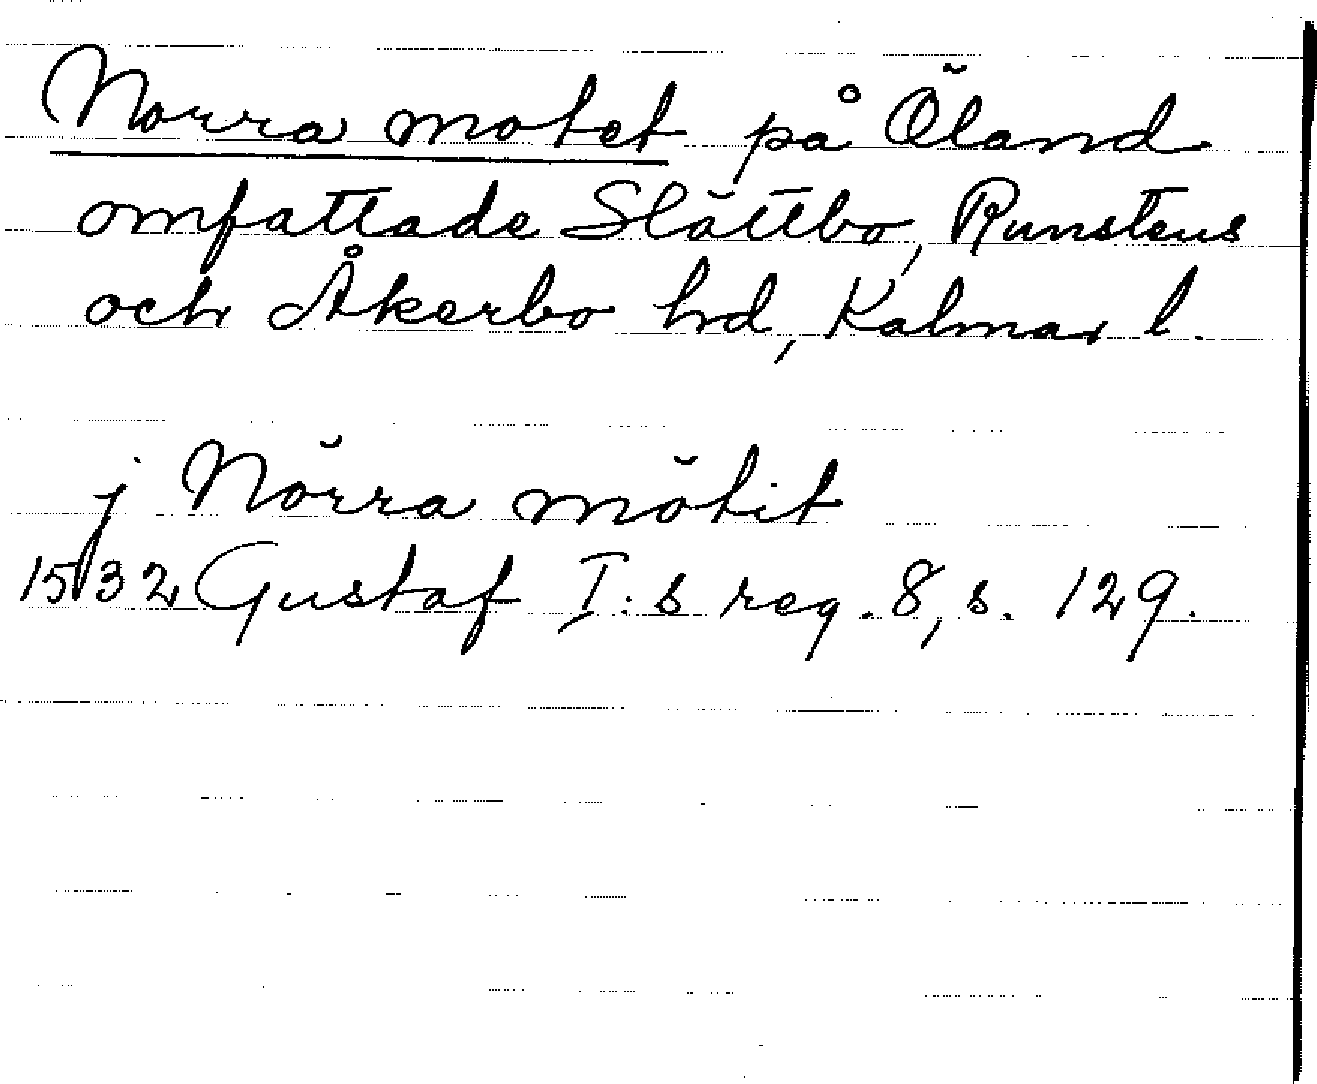 Norra motet på Öland
omfattade Slättbo, Runstens
och Åkerbo hd, Kalmar l.
j Nörra mötit
1532 Gustaf I:s reg. 8, s. 129.